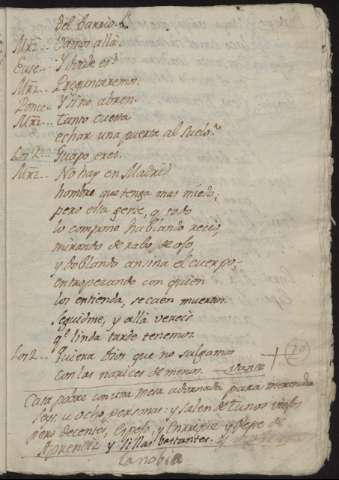 del Barrio.
Mrz... Vamos allá.
Euse... Y donde es?
Mrz... Preguntaremos.
Ponce... Y si no abren.
Mrz... Tanto cuesta
echar una puerta al suelo.
Los 2... Guapo eres.
Mrz... No hay en Madrid
hombre que tenga mas miedo;
pero esta gente, q. todo
lo compone hablando recio,
mirando de rabo de ojo,
y doblando ansina el cuerpo,
entropezando con quien
los entienda, se caen muertos.
seguidme, y allá vereis
q. linda tarde tenemos.
Los 2... Quiera Dios que no salgamos
con las narices de menos. vanse
Casa pobre con una mesa adornada para merienda
seis u ocho personas: y salen de tunos
pero decentes, Espejo, y Enrique y Pepe de
Aprendiz y sillas bastantes. y
la novia